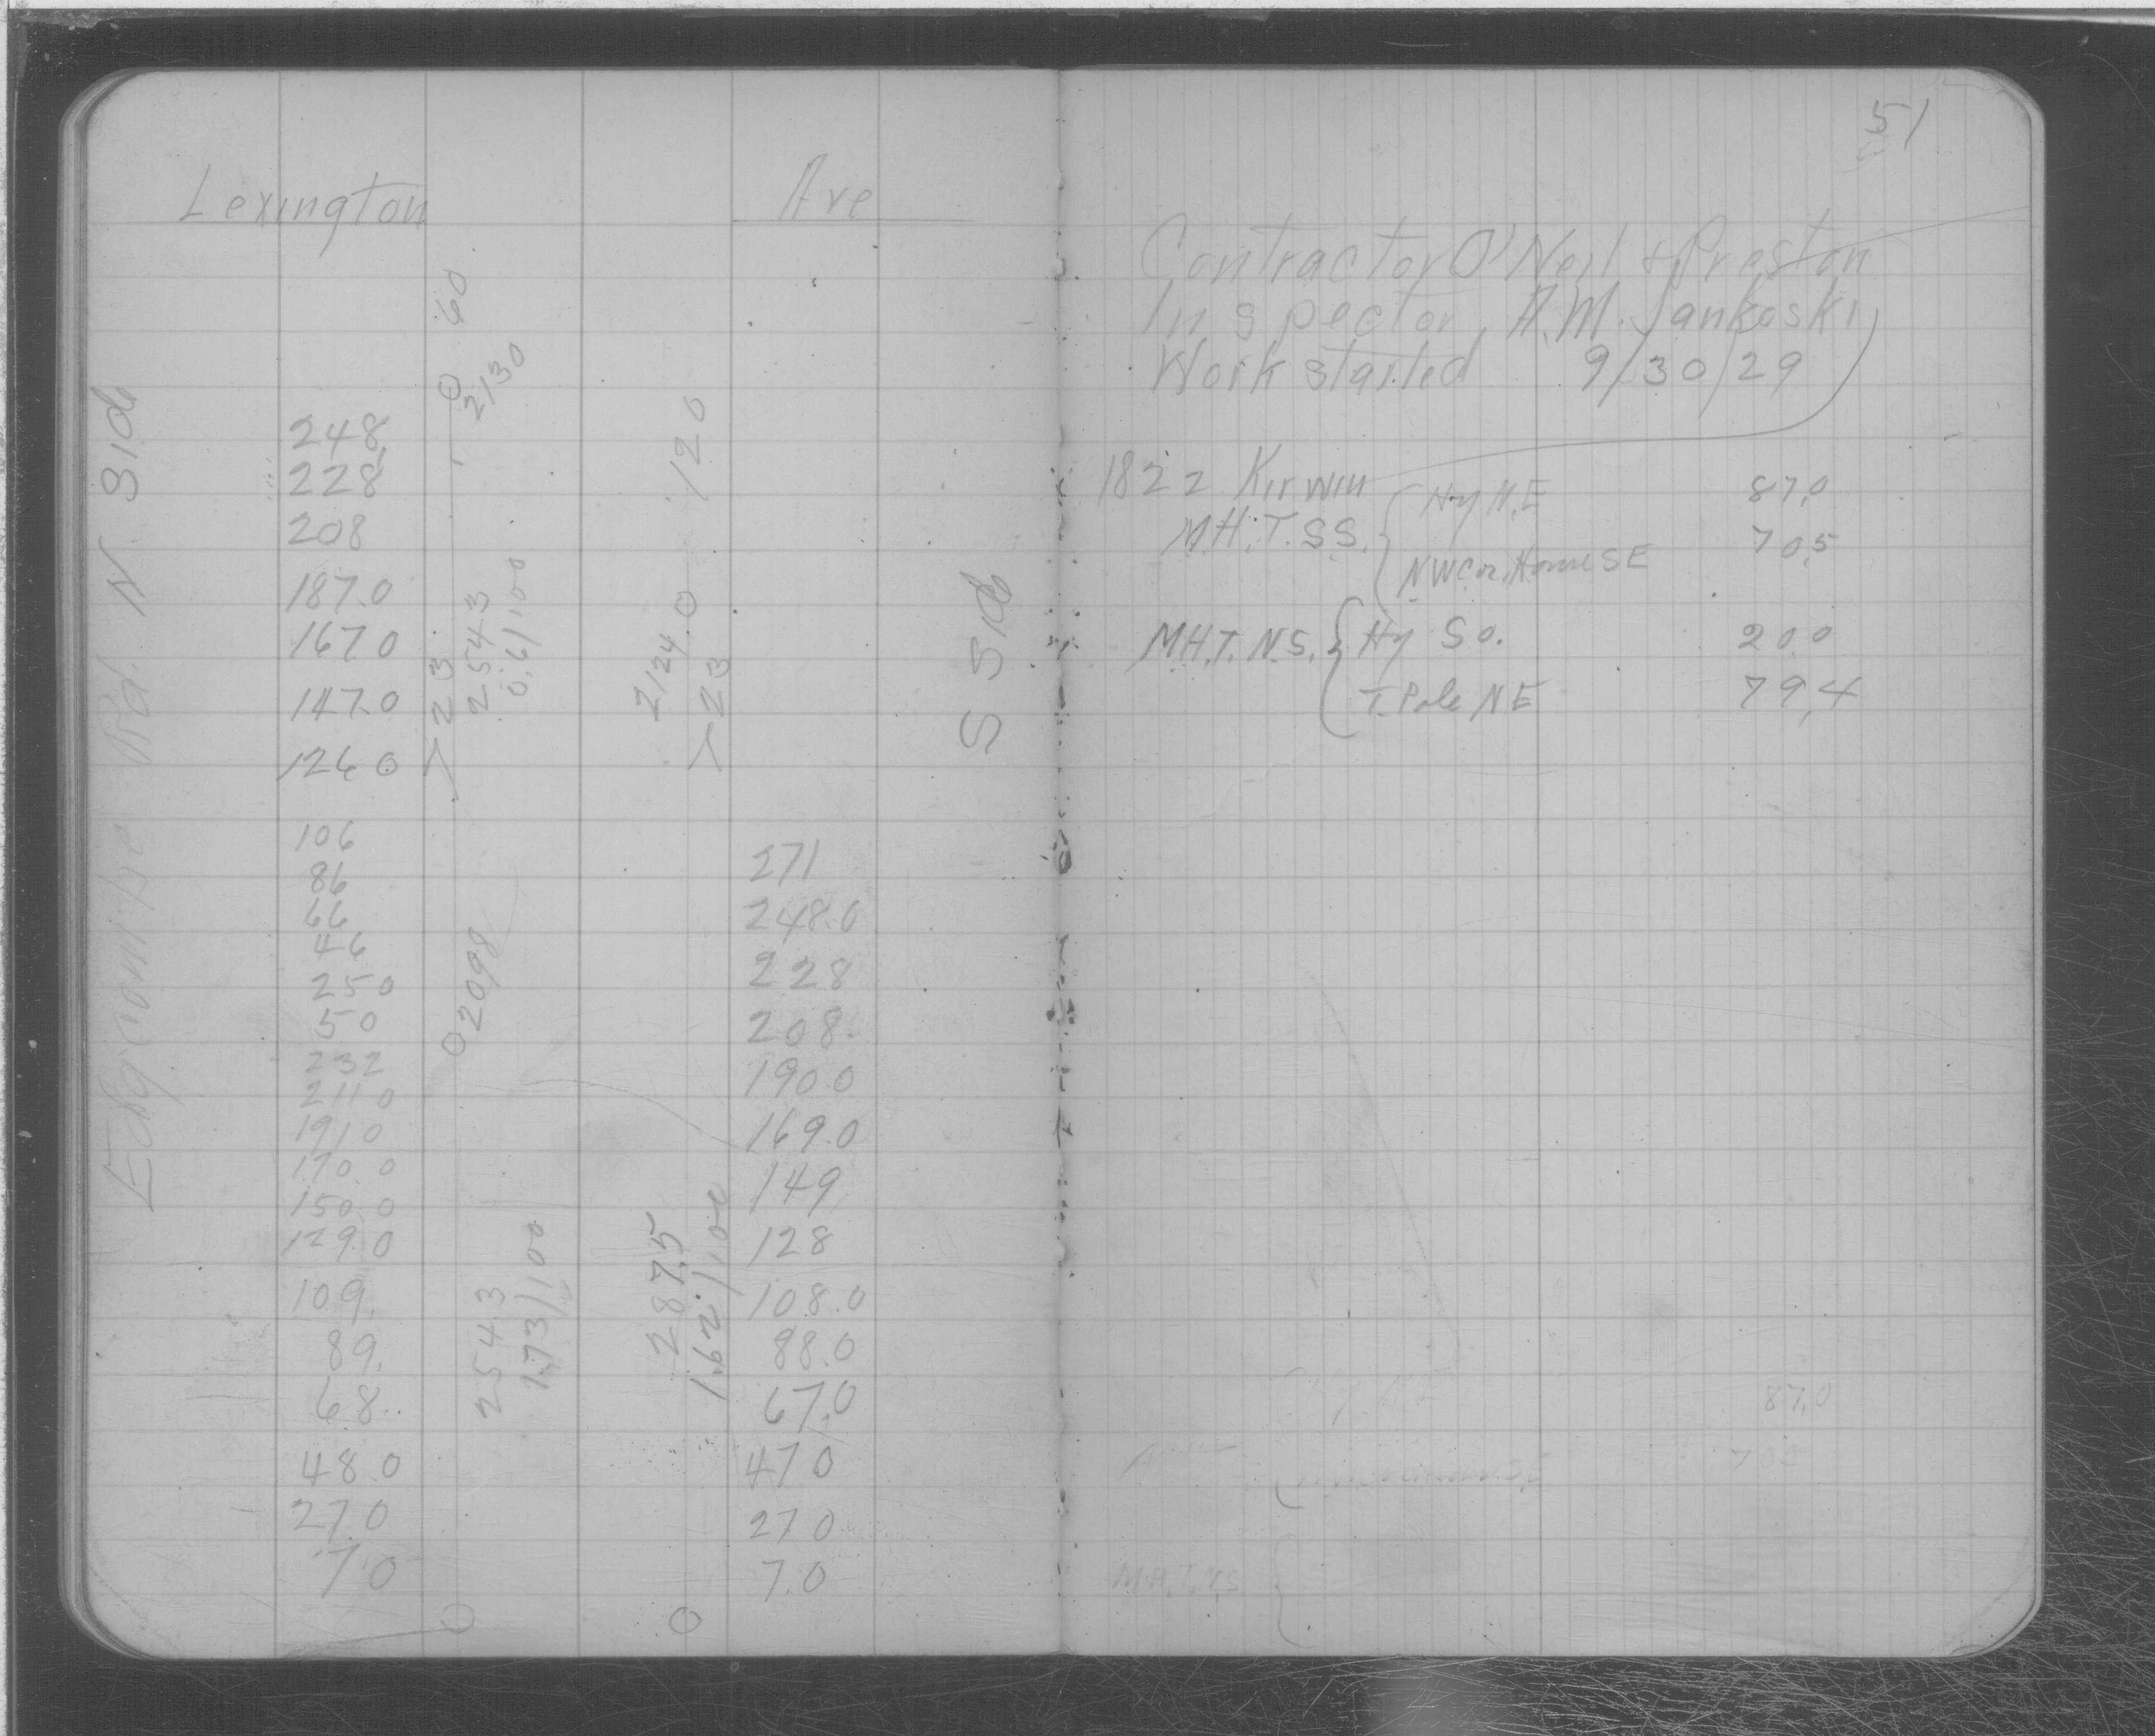 Lexington Ave
Edgemont Rd. N Side
248
228
208
187.0
167.0
147.0
126 0
106
86
66
46
250
50
232
211 0
191 0
170 0
150 0
129 0
109.
89.
68.
48.0
27.0
7.0
0 60
2130
> 23
254.3
0.61/100
0 209.8
254.3
1.73/100
0
120
2124.0
> 23
287.5
1.62/100
0
S Side
271
248.0
228
208.
190.0
169.0
149
128
108.0
88.0
67.0
47 0
27 0
7.0
51
Contractor O'Neil & Preston
Inspector A.M. Jankoski
Work started 9/30/29
1822 Kirwin Hy N.E 87.0
M.H.T.S.S. 70.5
NW Cor. Home SE
M.H.T. N.S. Hy So. 20.0
T. Pole NE 79.4
87.0
705
M.H.T.N.S.